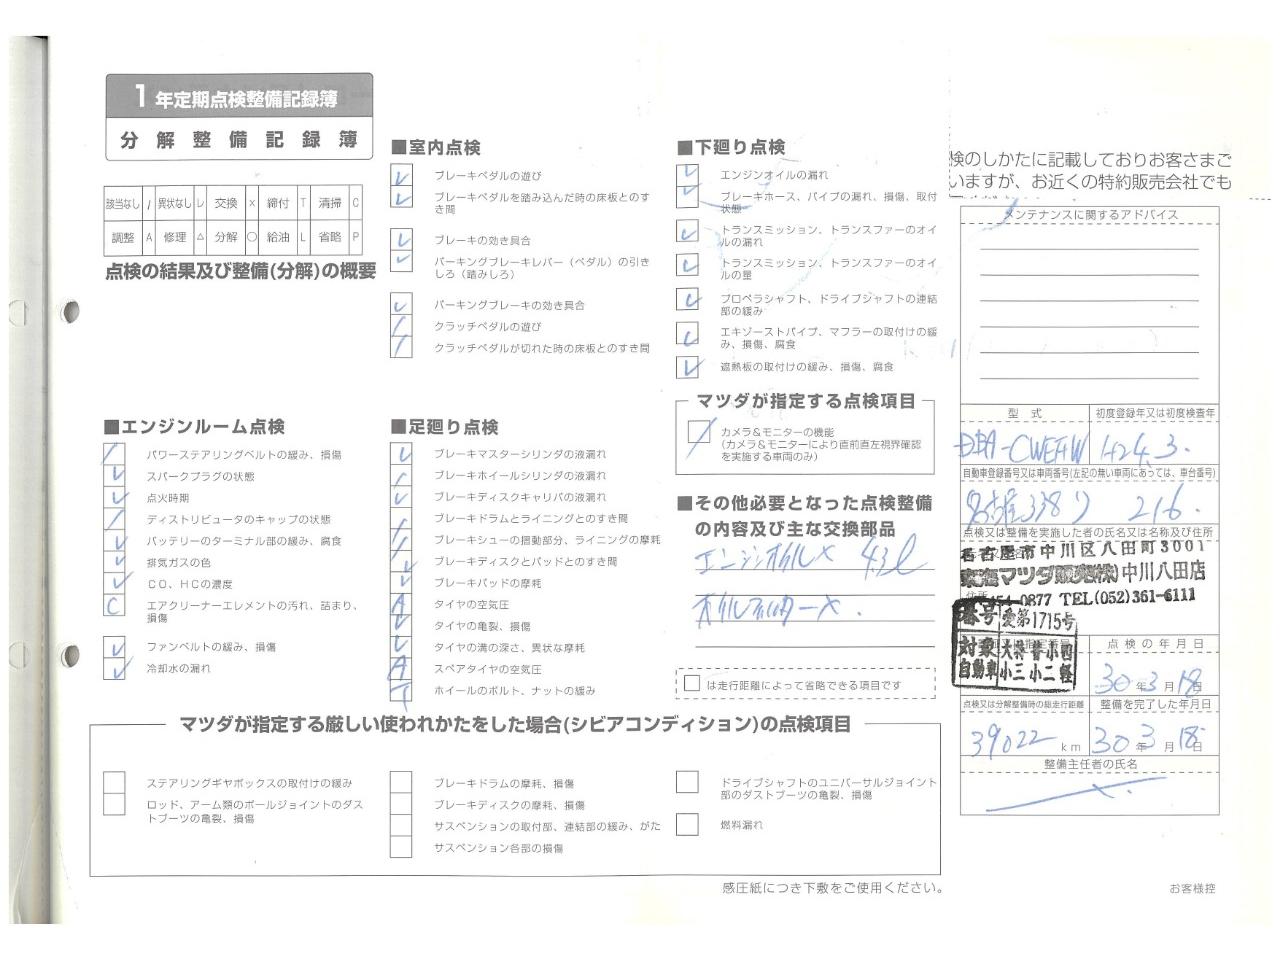 1年定期点検整備記録簿
分解整備記録簿
該当なし / 異状なし レ 交換 × 締付 T 清掃 C
調整 A 修理 △ 分解 ○ 給油 L 省略 P
点検の結果及び整備(分解)の概要
■エンジンルーム点検
パワーステアリングベルトの緩み、損傷
スパークプラグの状態
点火時期
ディストリビュータのキャップの状態
バッテリーのターミナル部の緩み、腐食
排気ガスの色
CO、HCの濃度
C エアクリーナーエレメントの汚れ、詰まり、
損傷
ファンベルトの緩み、損傷
冷却水の漏れ
■室内点検
ブレーキペダルの遊び
ブレーキペダルを踏み込んだ時の床板とのす
き間
ブレーキの効き具合
パーキングブレーキレバー（ペダル）の引き
しろ（踏みしろ）
パーキングブレーキの効き具合
クラッチペダルの遊び
クラッチペダルが切れた時の床板とのすき間
■足廻り点検
ブレーキマスターシリンダの液漏れ
ブレーキホイールシリンダの液漏れ
ブレーキディスクキャリパの液漏れ
ブレーキドラムとライニングとのすき間
ブレーキシューの摺動部分、ライニングの摩耗
ブレーキディスクとパッドとのすき間
ブレーキパッドの摩耗
A タイヤの空気圧
タイヤの亀裂、損傷
タイヤの溝の深さ、異状な摩耗
A スペアタイヤの空気圧
T ホイールのボルト、ナットの緩み
■下廻り点検
エンジンオイルの漏れ
ブレーキホース、パイプの漏れ、損傷、取付
状態
トランスミッション、トランスファーのオイ
ルの漏れ
トランスミッション、トランスファーのオイ
ルの量
プロペラシャフト、ドライブシャフトの連結
部の緩み
エキゾーストパイプ、マフラーの取付けの緩
み、損傷、腐食
遮熱板の取付けの緩み、損傷、腐食
マツダが指定する点検項目
カメラ&モニターの機能
(カメラ&モニターにより直前直左視界確認
を実施する車両のみ)
■その他必要となった点検整備
の内容及び主な交換部品
エンジンオイル× 4.3ℓ
オイルフィルター×.
は走行距離によって省略できる項目です
マツダが指定する厳しい使われかたをした場合(シビアコンディション)の点検項目
ステアリングギヤボックスの取付けの緩み
ロッド、アーム類のボールジョイントのダス
トブーツの亀裂、損傷
ブレーキドラムの摩耗、損傷
ブレーキディスクの摩耗、損傷
サスペンションの取付部、連結部の緩み、がた
サスペンション各部の損傷
ドライブシャフトのユニバーサルジョイント
部のダストブーツの亀裂、損傷
燃料漏れ
感圧紙につき下敷をご使用ください。
検のしかたに記載しておりお客さまご
いますが、お近くの特約販売会社でも
メンテナンスに関するアドバイス
型式 初度登録年又は初度検査年
DBA-CWEFW H24.3.
自動車登録番号又は車両番号(左記の無い車両にあっては、車台番号)
名古屋338り 216
点検又は整備を実施した者の氏名又は名称及び住所
名古屋市中川区八田町3001
東海マツダ販売(株)中川八田店
住所 454-0877 TEL(052)361-6111
番号 愛第1715号
対象 大 普 小四
自動車 小三 小二 軽
点検の年月日
30年3月18日
点検又は分解整備時の総走行距離 整備を完了した年月日
39022km 30年3月18日
整備主任者の氏名
お客様控